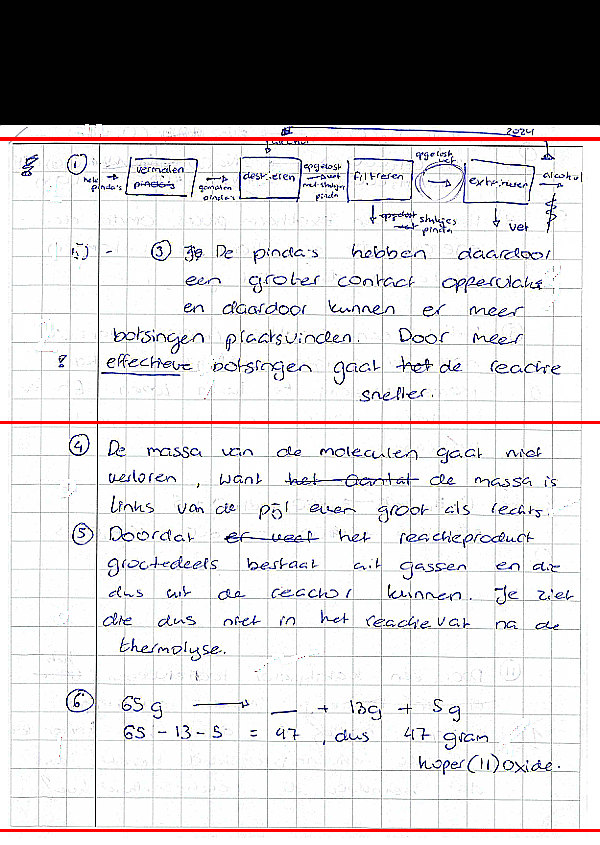 2024
① hele pinda's → vermalen ~~pinda's~~ → gemalen pinda's destileren opgelost vet met stukjes pinda filtreren opgelost vet → extraheren alcohol
~~opgelost vet~~ stukjes pinda
vet
③ De pinda's hebben daardoor
een groter contact oppervlakte
en daardoor kunnen er meer
botsingen plaatsvinden. Door meer
effectieve botsingen gaat ~~het~~ de reactie
sneller.
④ De massa van de moleculen gaat niet
verloren, want ~~het aantal~~ de massa is
links van de pijl even groot als rechts.
⑤ Doordat ~~er veel~~ het reactieproduct
grootedeels bestaat uit gassen en die
dus uit de reactor kunnen. Je ziet
die dus niet in het reactievat na de
thermolyse.
⑥ 65 g → __ + 13g + 5g
65 - 13 - 5 = 47, dus 47 gram
koper(II)oxide.